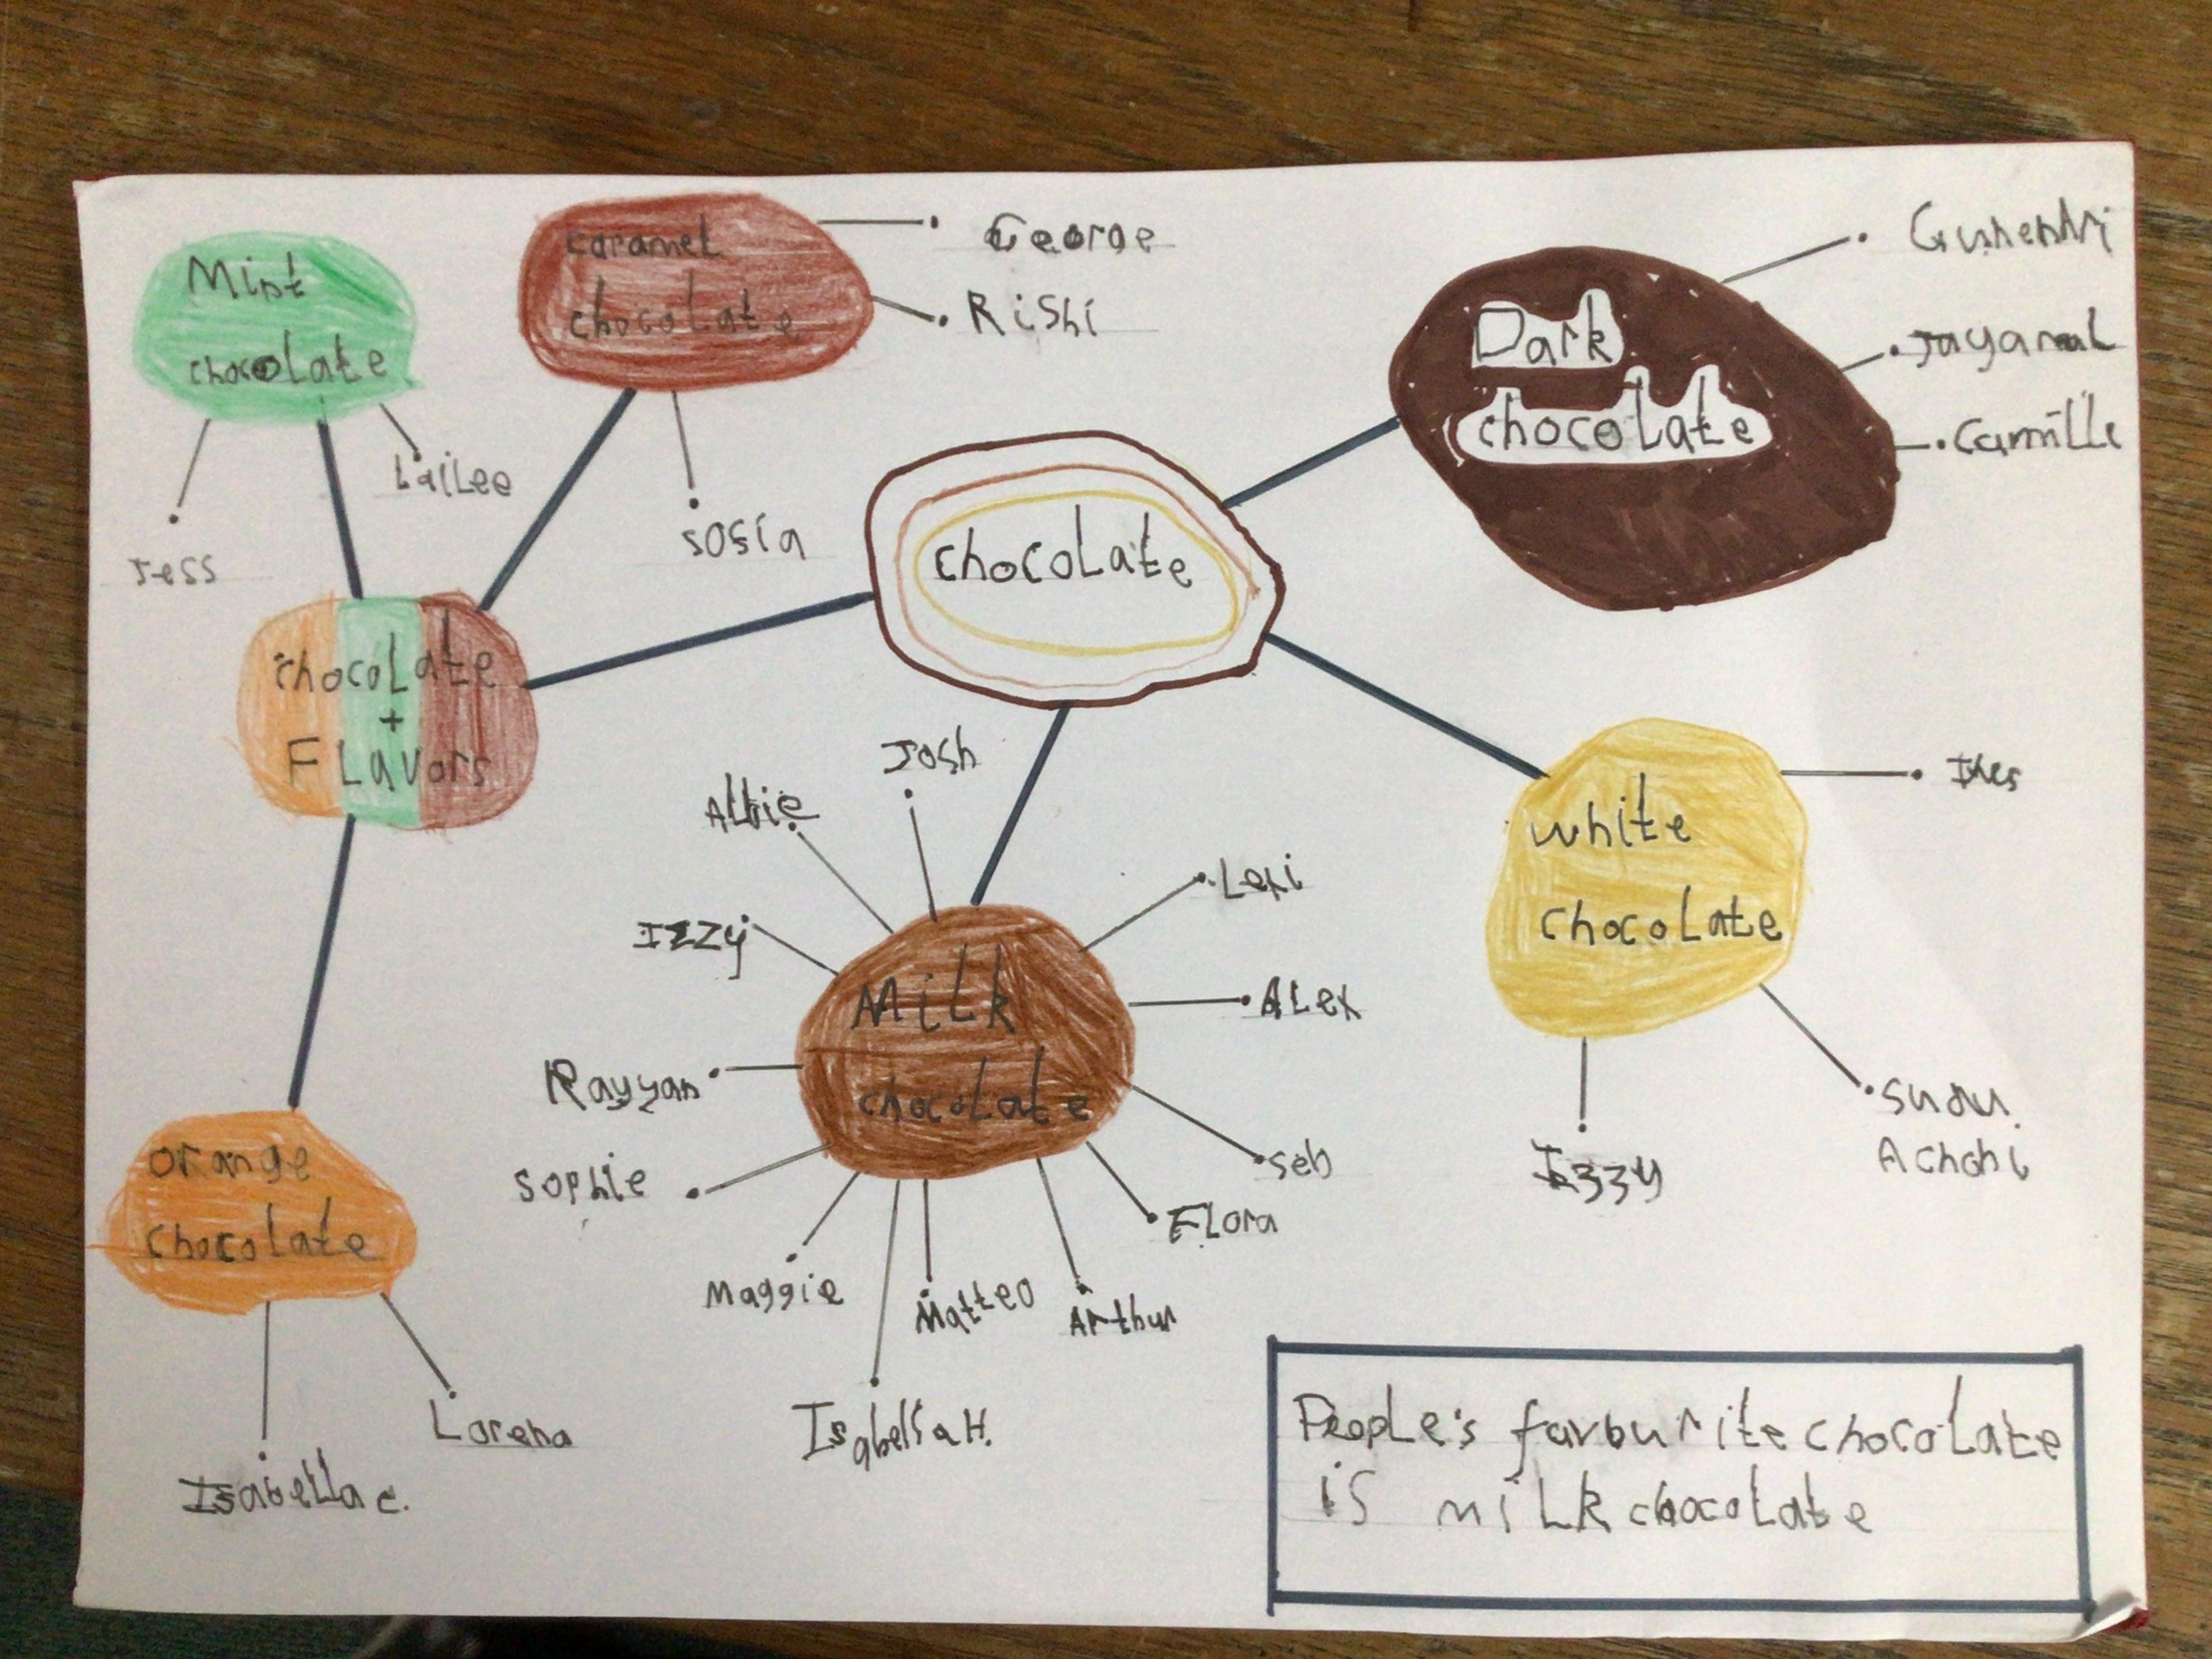 Mint
chocolate
Jess
Lailee
caramel
chocolate
George
Rishi
sosia
Dark
chocolate
Camille
chocolate
chocolate
+
FLavors
white
chocolate
Izzy
Milk
chocolate
Josh
Albie
Izzy
Rayyan
sophie
Maggie
Isabella H.
Matteo
Arthur
Flora
seb
ALex
Lexi
orange
chocolate
Isabella c.
Lorena
PeopLe's favourite chocoLate
is miLk chocoLate